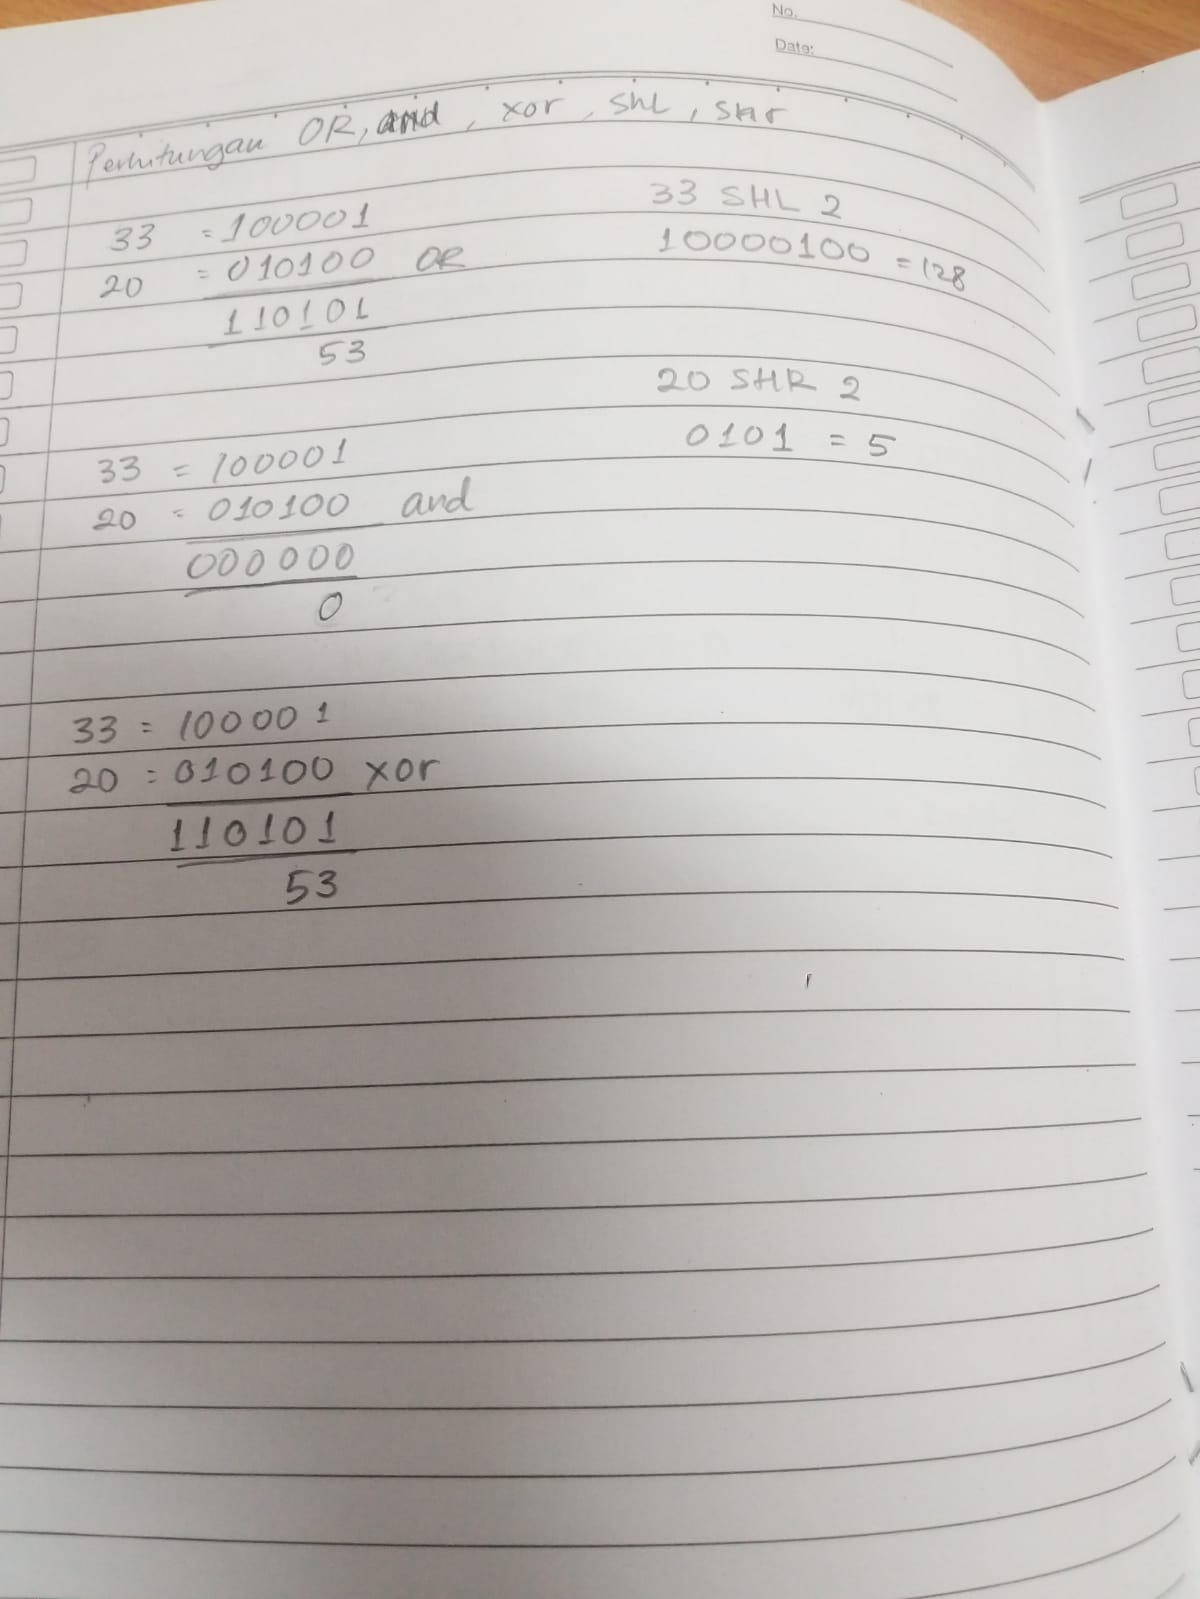 No.
Date:
Perhitungan OR, and, xor, shl, shr
33 = 100001
20 = 010100 OR
110101
53
33 = 100001
20 = 010100 and
000000
0
33 = 100001
20 = 010100 xor
110101
53
33 SHL 2
10000100 = 128
20 SHR 2
0101 = 5